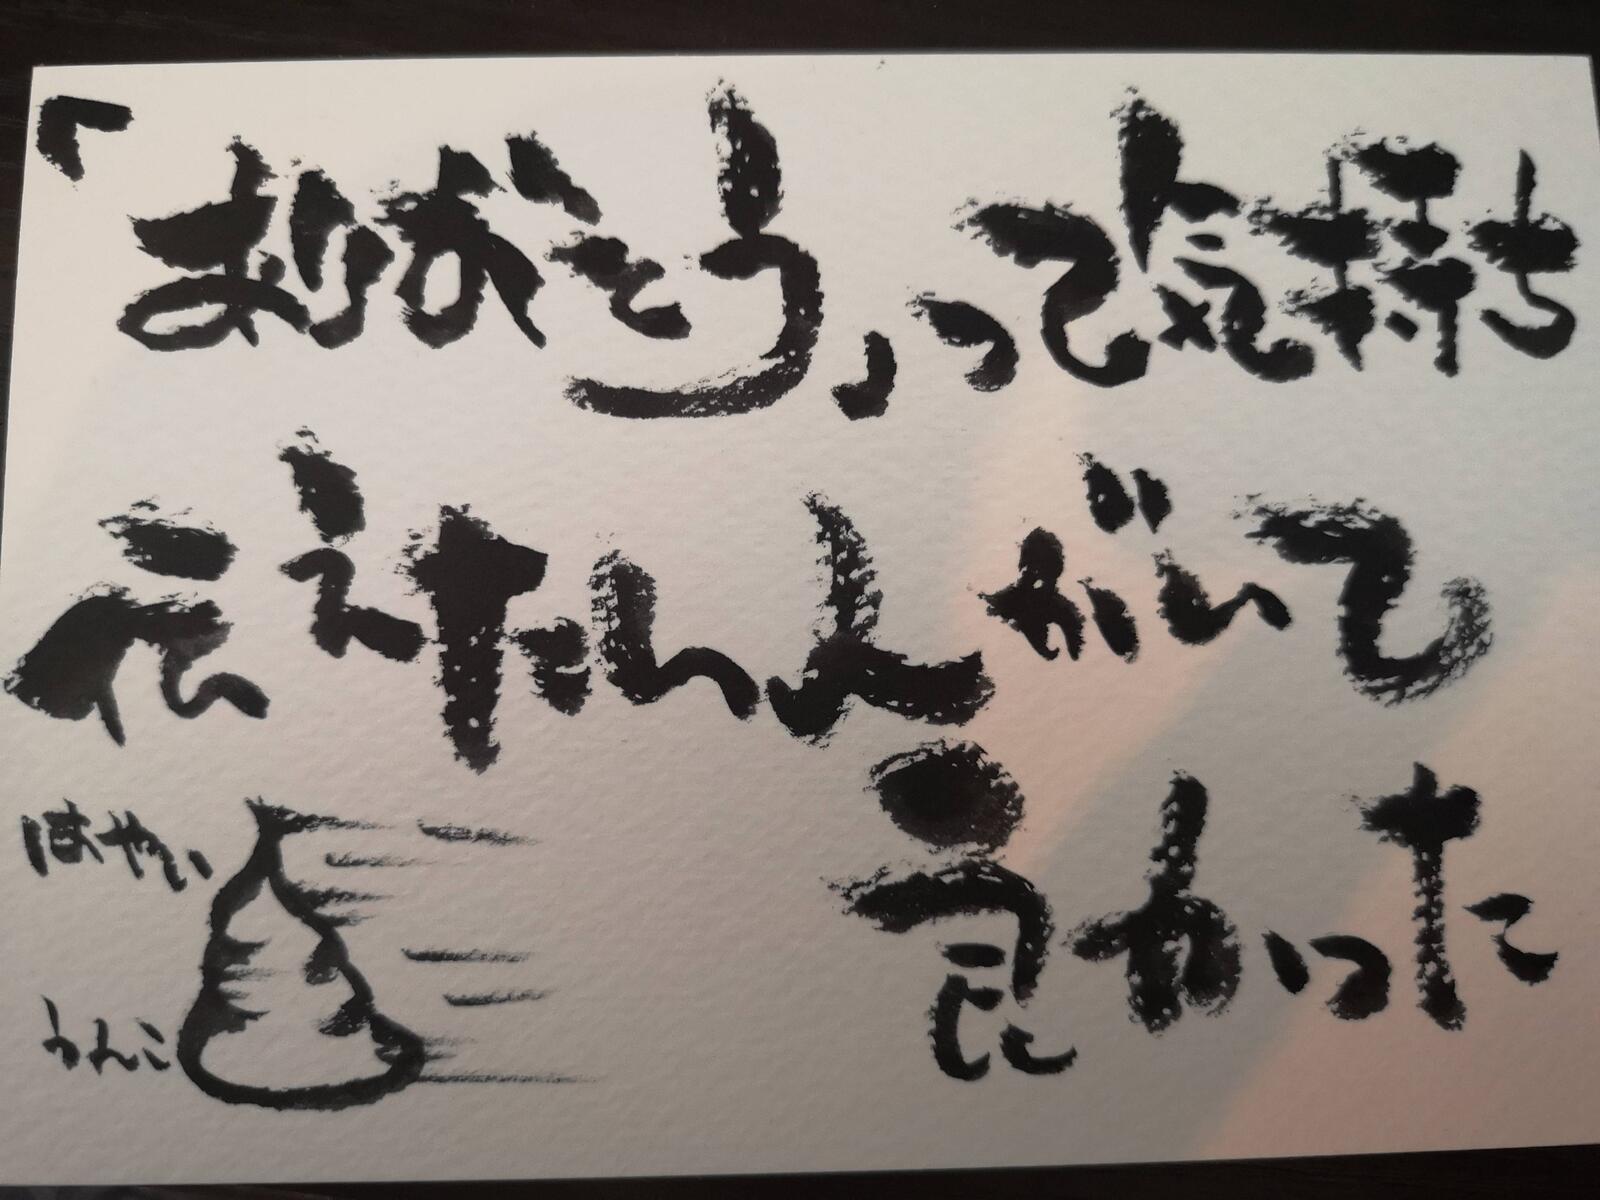 「ありがとう」って気持ち
伝えたい人がいて
良かった
はやい
うんこ